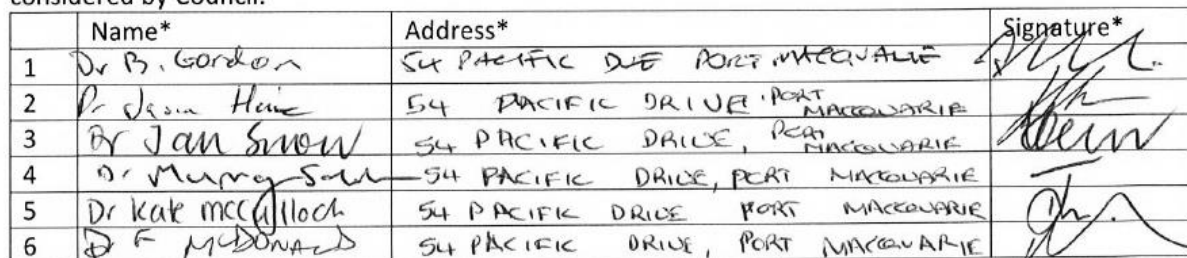 considered by Council.
Name* Address* Signature*
1 Dr B. Gordon 54 PACIFIC DVE PORT MACQUALIE
2 Dr Jason 54 PACIFIC DRIVE PORT MACQUARIE
3 Dr Jan Snow 54 PACIFIC DRIVE, PORT MACQUARIE
4 Dr Murray 54 PACIFIC DRIVE, PORT MACQUARIE
5 Dr Kate McCulloch 54 PACIFIC DRIVE PORT MACQUARIE
6 Dr F McDONALD 54 PACIFIC DRIVE, PORT MACQUARIE